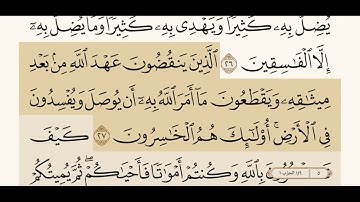 يُضِلُّ بِهِۦ كَثِيرًا وَيَهْدِى بِهِۦ كَثِيرًا وَمَا يُضِلُّ بِهِۦٓ
إِلَّا ٱلْفَٰسِقِينَ ٢٦ ٱلَّذِينَ يَنقُضُونَ عَهْدَ ٱللَّهِ مِنۢ بَعْدِ
مِيثَٰقِهِۦ وَيَقْطَعُونَ مَآ أَمَرَ ٱللَّهُ بِهِۦٓ أَن يُوصَلَ وَيُفْسِدُونَ
فِى ٱلْأَرْضِ أُو۟لَٰٓئِكَ هُمُ ٱلْخَٰسِرُونَ ٢٧ كَيْفَ
بِٱللَّهِ وَكُنتُمْ أَمْوَٰتًا فَأَحْيَٰكُمْ ثُمَّ يُمِيتُكُمْ
٥